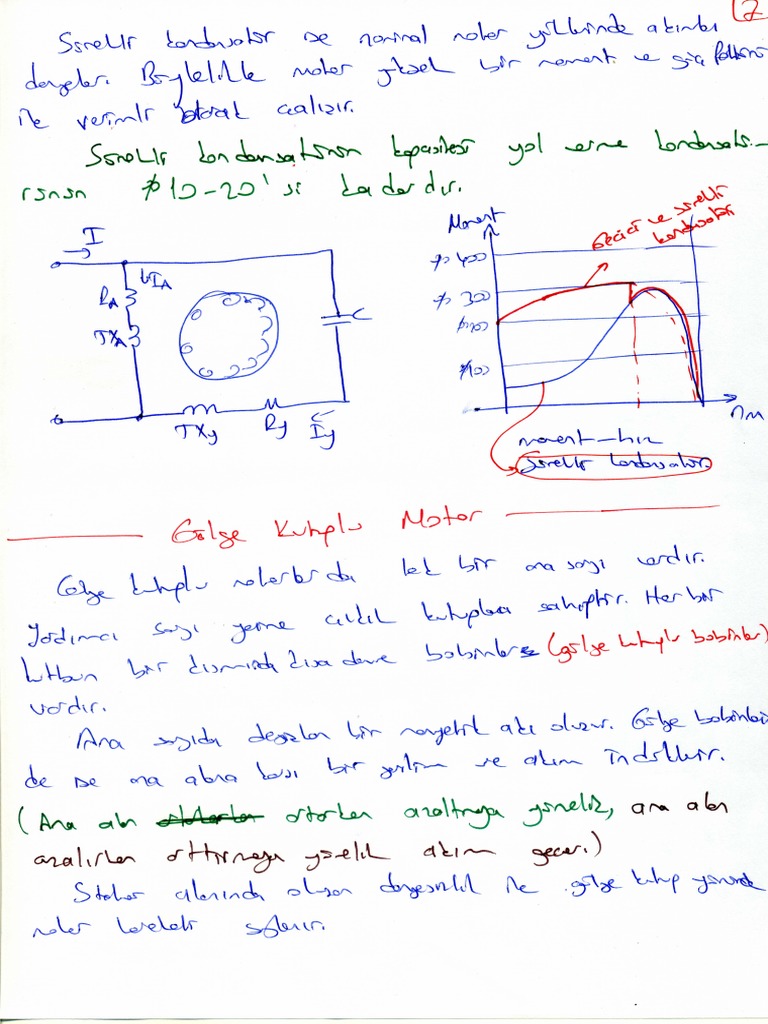 (7
Sürekli kondansatör ise nominal motor yüklerinde akımları
dengeler. Böylelikle motor yüksek bir moment ve güç faktörü
ile verimli olarak çalışır.
Sürekli kondansatörün kapasitesi yol verme kondansatö-
rünün %10-20'si kadardır.
I
IA
RA
JXA
C
JXy
Ry
Iy
Moment
%400
%300
%200
%100
Geçici ve sürekli
kondansatör
nm
moment-hız
sürekli kondansatör.
Gölge Kutuplu Motor
Gölge kutuplu motorlarda tek bir ana sargı vardır.
Yardımcı sargı yerine çıkık kutuplara sahiptir. Her bir
kutbun bir kısmında kısa devre bobinler (gölge kutuplu bobinler)
vardır.
Ana sargıda değişken bir manyetik akı oluşur. Gölge bobinleri
de ise ana alana karşı bir gerilim ve akım indüklenir.
(Ana alan artarken azaltmaya yönelik, ana alan
azalırken arttırmaya yönelik akım geçer.)
Stator alanında oluşan dengesizlik ile gölge kutup yönünde
motor hareketi sağlanır.